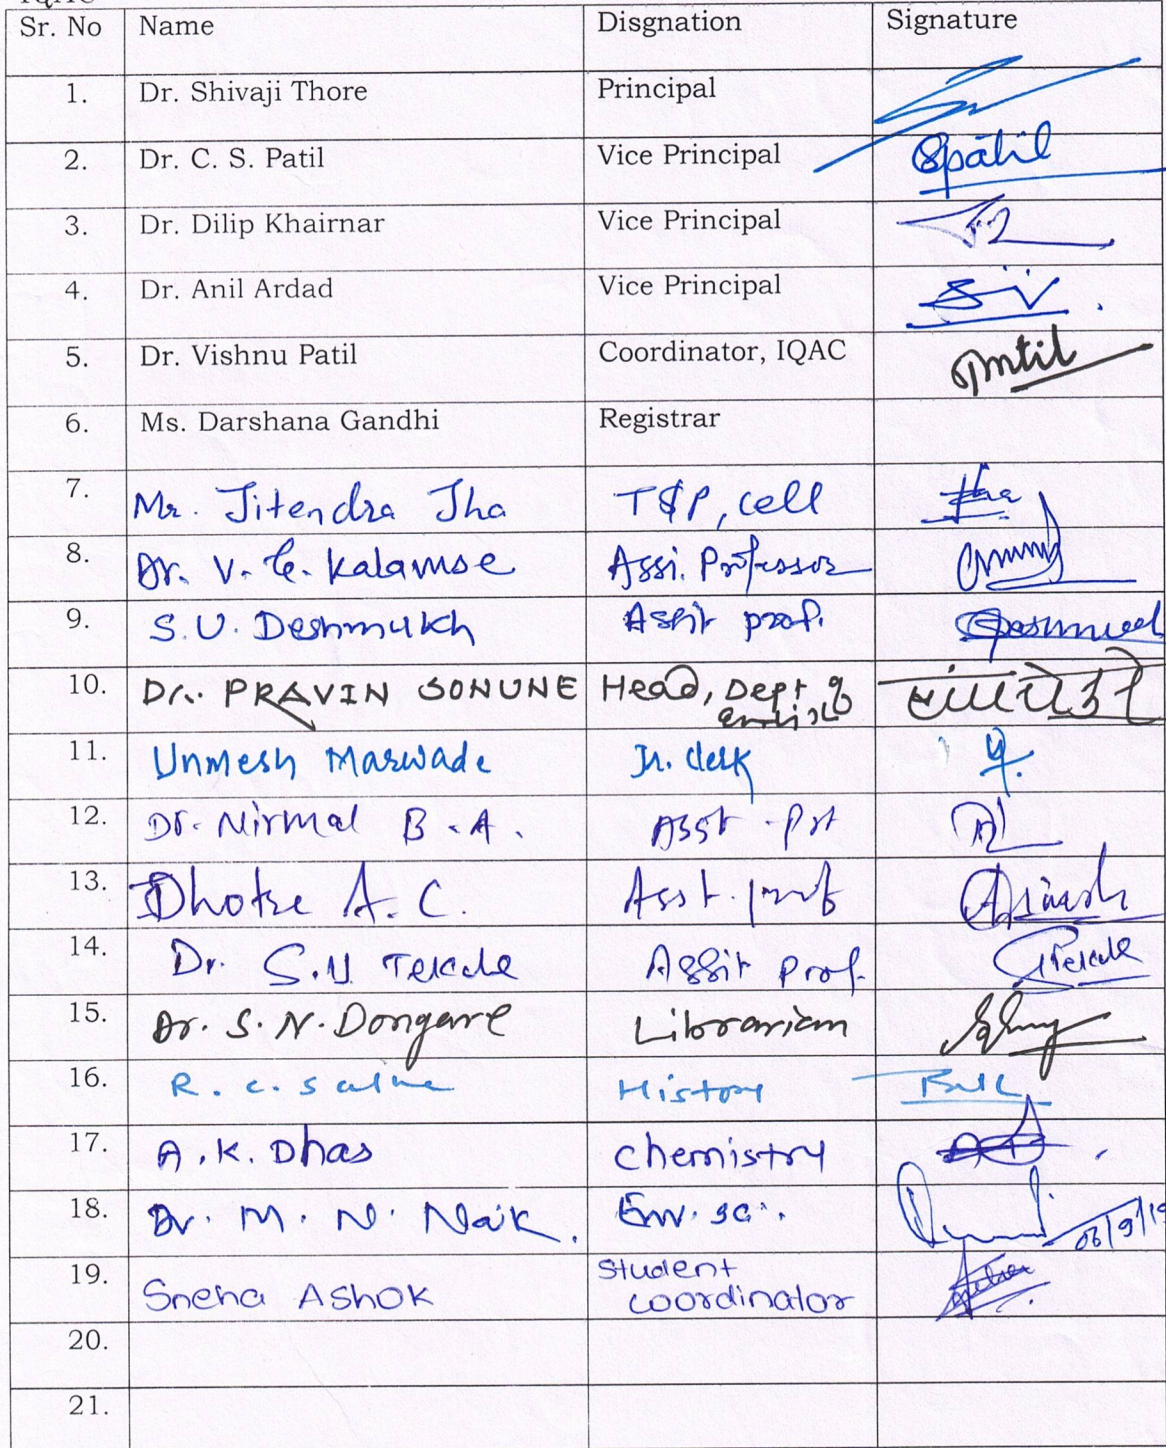 Sr. No Name Disgnation Signature
1. Dr. Shivaji Thore Principal
2. Dr. C. S. Patil Vice Principal Spatil
3. Dr. Dilip Khairnar Vice Principal
4. Dr. Anil Ardad Vice Principal
5. Dr. Vishnu Patil Coordinator, IQAC
6. Ms. Darshana Gandhi Registrar
7. Mr. Jitendra Jha T&P, cell Jha
8. Dr. V. G. Kalamse Assi. Professor
9. S.U. Deshmukh Assit prof.
10. Dr. PRAVIN SONUNE Head, Dept of
English
11. Unmesh Marwade Jr. clerk
12. Dr. Nirmal B.A. Asst
13. Dhotre A.C. Asst. prof
14. Dr. S.U. Tekale Assit prof.
15. Dr. S.N. Dongare Librarian
16. R. C. History
17. A.K. Dhas chemistry
18. Dr. M. N. Naik. Env. Sc.
19. Sneha Ashok Student
coordinator
20.
21.